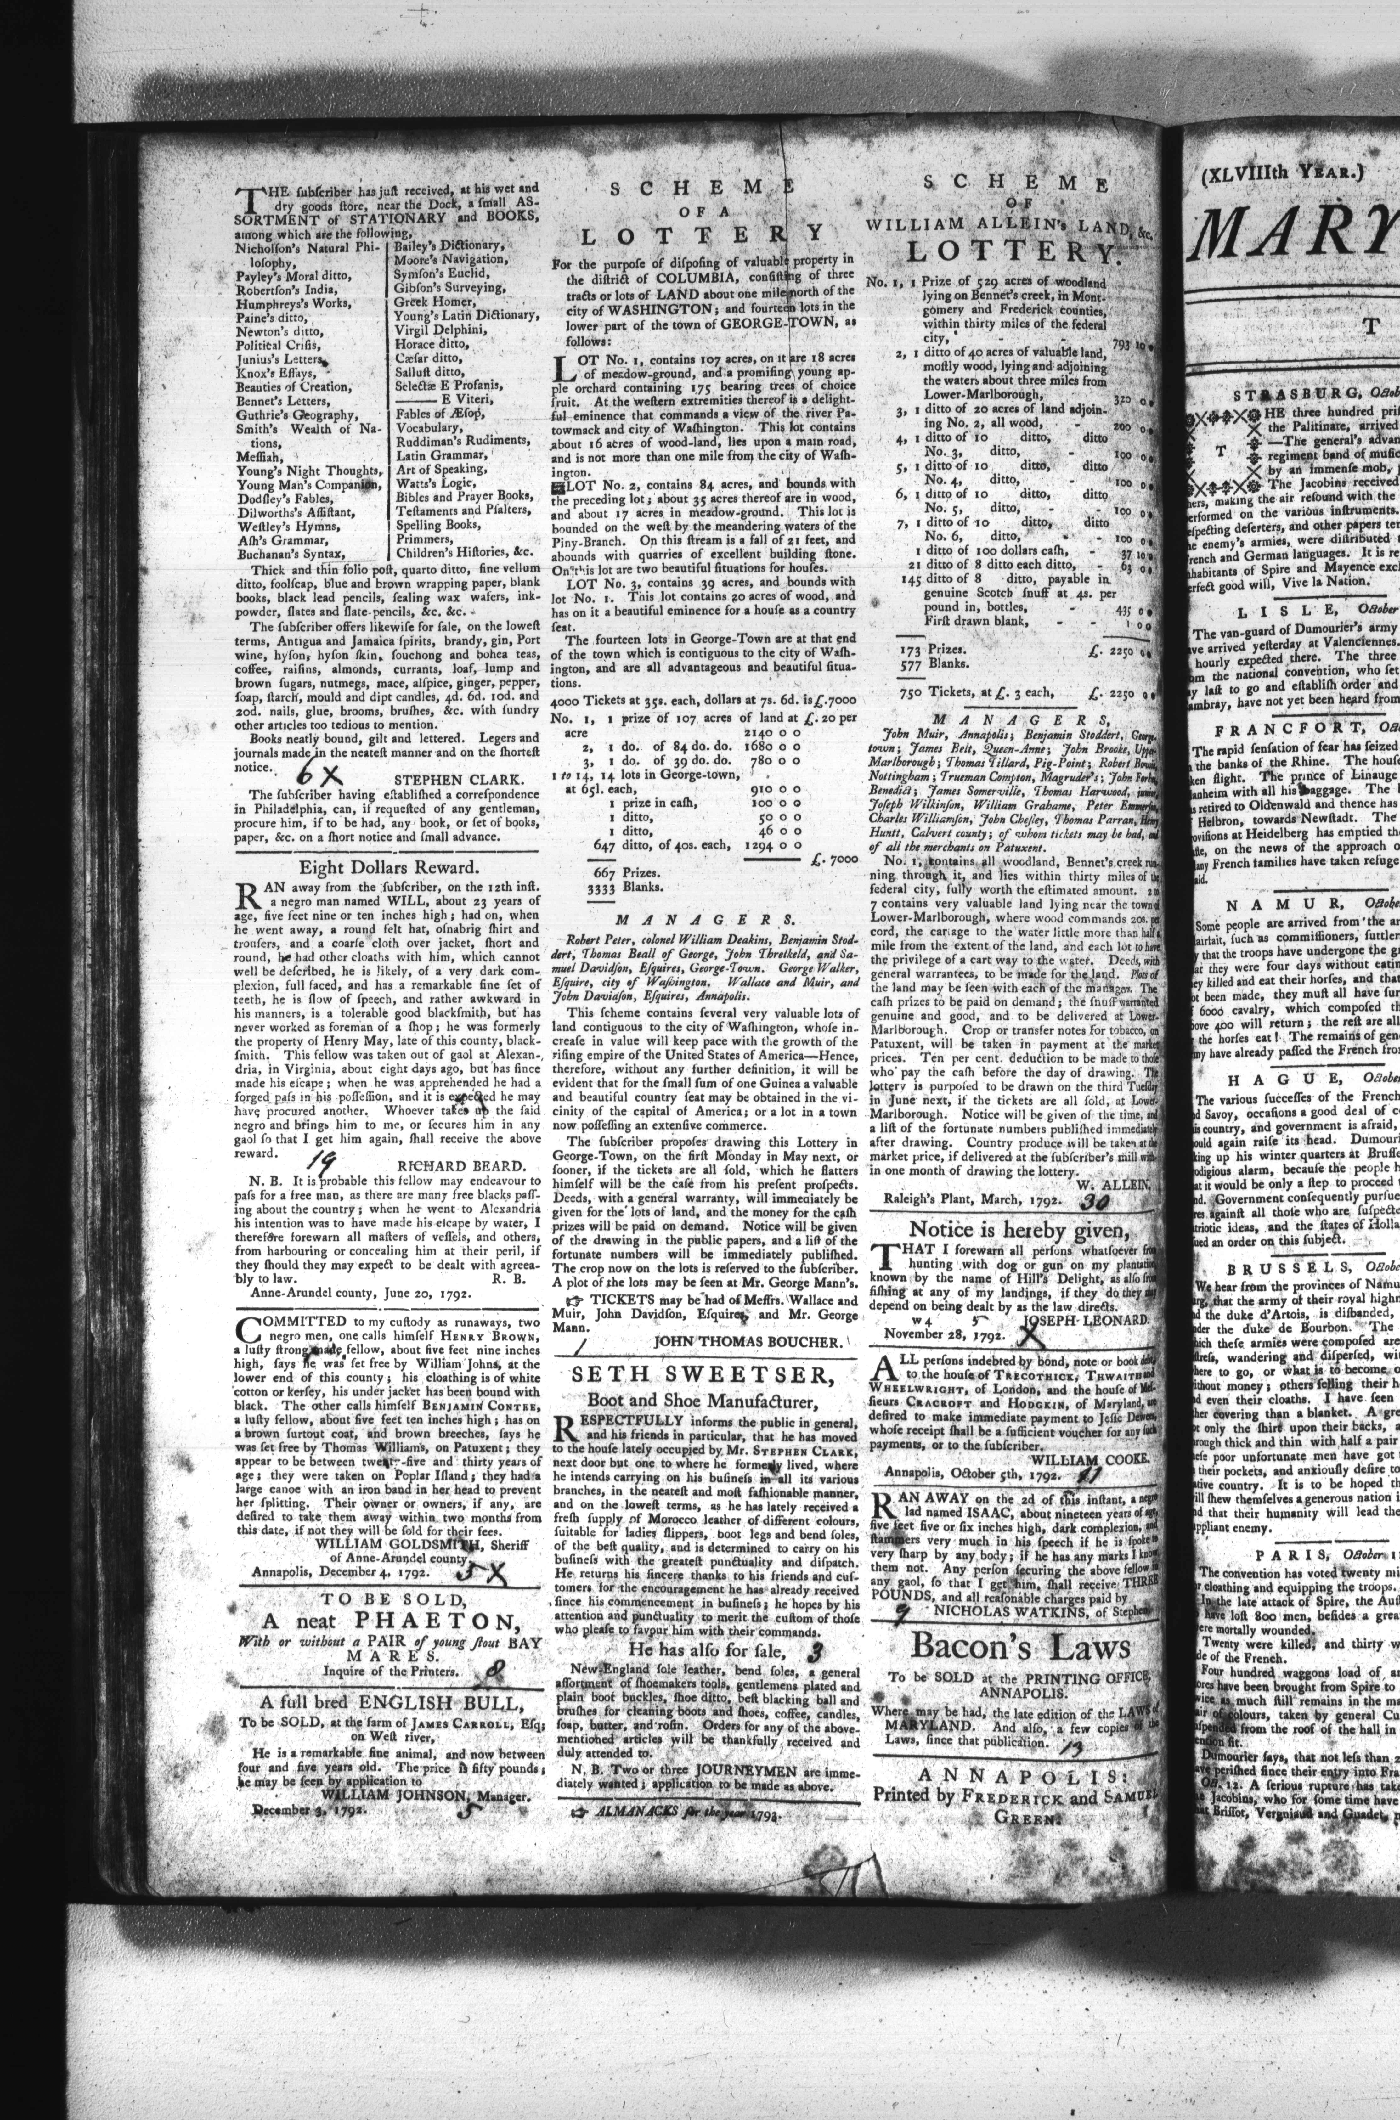 THE subscriber has just received, at his wet and
dry goods store, near the Dock, a small AS-
SORTMENT of STATIONARY and BOOKS,
among which are the following,
Nicholson's Natural Phi-
losophy,
Payley's Moral ditto,
Robertson's India,
Humphreys's Works,
Paine's ditto,
Newton's ditto,
Political Crisis,
Junius's Letters,
Knox's Essays,
Beauties of Creation,
Bennet's Letters,
Guthrie's Geography,
Smith's Wealth of Na-
tions,
Messiah,
Young's Night Thoughts,
Young Man's Companion,
Dodsley's Fables,
Dilworths's Assistant,
Westley's Hymns,
Ash's Grammar,
Buchanan's Syntax,
Bailey's Dictionary,
Moore's Navigation,
Symson's Euclid,
Gibson's Surveying,
Greek Homer,
Young's Latin Dictionary,
Virgil Delphini,
Horace ditto,
Cæsar ditto,
Sallust ditto,
Selectæ E Profanis,
——— E Viteri,
Fables of Æsop,
Vocabulary,
Ruddiman's Rudiments,
Latin Grammar,
Art of Speaking,
Watts's Logic,
Bibles and Prayer Books,
Testaments and Psalters,
Spelling Books,
Primmers,
Children's Histories, &c.
Thick and thin folio post, quarto ditto, fine vellum
ditto, foolscap, blue and brown wrapping paper, blank
books, black lead pencils, sealing wax wafers, ink-
powder, slates and slate-pencils, &c. &c.
The subscriber offers likewise for sale, on the lowest
terms, Antigua and Jamaica spirits, brandy, gin, Port
wine, hyson, hyson skin, souchong and bohea teas,
coffee, raisins, almonds, currants, loaf, lump and
brown sugars, nutmegs, mace, alspice, ginger, pepper,
soap, starch, mould and dipt candles, 4d. 6d. 10d. and
20d. nails, glue, brooms, brushes, &c. with sundry
other articles too tedious to mention.
Books neatly bound, gilt and lettered. Legers and
journals made in the neatest manner and on the shortest
notice.
6 X
STEPHEN CLARK.
The subscriber having established a correspondence
in Philadelphia, can, if requested of any gentleman,
procure him, if to be had, any book, or set of books,
paper, &c. on a short notice and small advance.
Eight Dollars Reward.
RAN away from the subscriber, on the 12th inst.
a negro man named WILL, about 23 years of
age, five feet nine or ten inches high; had on, when
he went away, a round felt hat, osnabrig shirt and
trousers, and a coarse cloth over jacket, short and
round, he had other cloaths with him, which cannot
well be described, he is likely, of a very dark com-
plexion, full faced, and has a remarkable fine set of
teeth, he is slow of speech, and rather awkward in
his manners, is a tolerable good blacksmith, but has
never worked as foreman of a shop; he was formerly
the property of Henry May, late of this county, black-
smith. This fellow was taken out of gaol at Alexan-
dria, in Virginia, about eight days ago, but has since
made his escape; when he was apprehended he had a
forged pass in his possession, and it is expected he may
have procured another. Whoever takes up the said
negro and brings him to me, or secures him in any
gaol so that I get him again, shall receive the above
reward.
19
RICHARD BEARD.
N. B. It is probable this fellow may endeavour to
pass for a free man, as there are many free blacks pass-
ing about the country; when he went to Alexandria
his intention was to have made his escape by water, I
therefore forewarn all masters of vessels, and others,
from harbouring or concealing him at their peril, if
they should they may expect to be dealt with agreea-
bly to law. R. B.
Anne-Arundel county, June 20, 1792.
COMMITTED to my custody as runaways, two
negro men, one calls himself HENRY BROWN,
a lusty strong made fellow, about five feet nine inches
high, says he was set free by William Johns, at the
lower end of this county; his cloathing is of white
cotton or kersey, his under jacket has been bound with
black. The other calls himself BENJAMIN CONTEE,
a lusty fellow, about five feet ten inches high; has on
a brown surtout coat, and brown breeches, says he
was set free by Thomas Williams, on Patuxent; they
appear to be between twenty-five and thirty years of
age; they were taken on Poplar Island; they had a
large canoe with an iron band in her head to prevent
her splitting. Their owner or owners, if any, are
desired to take them away within two months from
this date, if not they will be sold for their fees.
WILLIAM GOLDSMITH, Sheriff
of Anne-Arundel county.
Annapolis, December 4, 1792. 5 X
TO BE SOLD,
A neat PHAETON,
With or without a PAIR of young stout BAY
MARES.
Inquire of the Printers. 8
A full bred ENGLISH BULL,
To be SOLD, at the farm of JAMES CARROLL, Esq;
on West river,
He is a remarkable fine animal, and now between
four and five years old. The price is fifty pounds;
he may be seen by application to
WILLIAM JOHNSON, Manager.
December 3, 1792. 5
SCHEME
OF A
LOTTERY
For the purpose of disposing of valuable property in
the district of COLUMBIA, consisting of three
tracts or lots of LAND about one mile north of the
city of WASHINGTON; and fourteen lots in the
lower part of the town of GEORGE-TOWN, as
follows:
LOT No. 1, contains 107 acres, on it are 18 acres
of meadow-ground, and a promising young ap-
ple orchard containing 175 bearing trees of choice
fruit. At the western extremities thereof is a delight-
ful eminence that commands a view of the river Pa-
towmack and city of Washington. This lot contains
about 16 acres of wood-land, lies upon a main road,
and is not more than one mile from the city of Wash-
ington.
LOT No. 2, contains 84 acres, and bounds with
the preceding lot; about 35 acres thereof are in wood,
and about 17 acres in meadow-ground. This lot is
bounded on the west by the meandering waters of the
Piny-Branch. On this stream is a fall of 21 feet, and
abounds with quarries of excellent building stone.
On this lot are two beautiful situations for houses.
LOT No. 3, contains 39 acres, and bounds with
lot No. 1. This lot contains 20 acres of wood, and
has on it a beautiful eminence for a house as a country
seat.
The fourteen lots in George-Town are at that end
of the town which is contiguous to the city of Wash-
ington, and are all advantageous and beautiful situa-
tions.
4000 Tickets at 35s. each, dollars at 7s. 6d. is £.7000
No. 1, 1 prize of 107 acres of land at £. 20 per
acre 2140 0 0
2, 1 do. of 84 do. do. 1680 0 0
3, 1 do. of 39 do. do. 780 0 0
1 to 14, 14 lots in George-town,
at 65l. each, 910 0 0
1 prize in cash, 100 0 0
1 ditto, 50 0 0
1 ditto, 46 0 0
647 ditto, of 40s. each, 1294 0 0
£. 7000
667 Prizes.
3333 Blanks.
MANAGERS.
Robert Peter, colonel William Deakins, Benjamin Stod-
dert, Thomas Beall of George, John Threlkeld, and Sa-
muel Davidson, Esquires, George-Town. George Walker,
Esquire, city of Washington. Wallace and Muir, and
John Davidson, Esquires, Annapolis.
This scheme contains several very valuable lots of
land contiguous to the city of Washington, whose in-
crease in value will keep pace with the growth of the
rising empire of the United States of America—Hence,
therefore, without any further definition, it will be
evident that for the small sum of one Guinea a valuable
and beautiful country seat may be obtained in the vi-
cinity of the capital of America; or a lot in a town
now possessing an extensive commerce.
The subscriber proposes drawing this Lottery in
George-Town, on the first Monday in May next, or
sooner, if the tickets are all sold, which he flatters
himself will be the case from his present prospects.
Deeds, with a general warranty, will immediately be
given for the lots of land, and the money for the cash
prizes will be paid on demand. Notice will be given
of the drawing in the public papers, and a list of the
fortunate numbers will be immediately published.
The crop now on the lots is reserved to the subscriber.
A plot of the lots may be seen at Mr. George Mann's.
☞ TICKETS may be had of Messrs. Wallace and
Muir, John Davidson, Esquires, and Mr. George
Mann.
1
JOHN THOMAS BOUCHER.
SETH SWEETSER,
Boot and Shoe Manufacturer,
RESPECTFULLY informs the public in general,
and his friends in particular, that he has moved
to the house lately occupied by Mr. STEPHEN CLARK,
next door but one to where he formerly lived, where
he intends carrying on his business in all its various
branches, in the neatest and most fashionable manner,
and on the lowest terms, as he has lately received a
fresh supply of Morocco leather of different colours,
suitable for ladies slippers, boot legs and bend soles,
of the best quality, and is determined to carry on his
business with the greatest punctuality and dispatch.
He returns his sincere thanks to his friends and cus-
tomers for the encouragement he has already received
since his commencement in business; he hopes by his
attention and punctuality to merit the custom of those
who please to favour him with their commands.
He has also for sale, 3
New-England sole leather, bend soles, a general
assortment of shoemakers tools, gentlemens plated and
plain boot buckles, shoe ditto, best blacking ball and
brushes for cleaning boots and shoes, coffee, candles,
soap, butter, and rosin. Orders for any of the above-
mentioned articles will be thankfully received and
duly attended to.
N. B. Two or three JOURNEYMEN are imme-
diately wanted; application to be made as above.
☞ ALMANACKS for the year 1793.
SCHEME
OF
WILLIAM ALLEIN's LAND, &c.
LOTTERY.
No. 1, 1 Prize of 529 acres of woodland
lying on Bennet's creek, in Mont-
gomery and Frederick counties,
within thirty miles of the federal
city, 793 10
2, 1 ditto of 40 acres of valuable land,
mostly wood, lying and adjoining
the waters about three miles from
Lower-Marlborough, 320 0
3, 1 ditto of 20 acres of land adjoin-
ing No. 2, all wood, 200 0
4, 1 ditto of 10 ditto, ditto
No. 3, ditto, 100 0
5, 1 ditto of 10 ditto, ditto
No. 4, ditto, 100 0
6, 1 ditto of 10 ditto, ditto
No. 5, ditto, 100 0
7, 1 ditto of 10 ditto, ditto
No. 6, ditto, 100 0
1 ditto of 100 dollars cash, 37 10
21 ditto of 8 ditto each ditto, 63 0
145 ditto of 8 ditto, payable in
genuine Scotch snuff at 4s. per
pound in, bottles, 435 0
First drawn blank, 1 0 0
173 Prizes. £. 2250
577 Blanks.
750 Tickets, at £. 3 each, £. 2250
MANAGERS,
John Muir, Annapolis; Benjamin Stoddert, George-
town; James Belt, Queen-Anne; John Brooke, Upper-
Marlborough; Thomas Tillard, Pig-Point; Robert Bowie,
Nottingham; Trueman Compton, Magruder's; John Forbes,
Benedict; James Somerville, Thomas Harwood, junior,
Joseph Wilkinson, William Grahame, Peter Emmerson,
Charles Williamson, John Chesley, Thomas Parran, Henry
Huntt, Calvert county; of whom tickets may be had, and
of all the merchants on Patuxent.
No. 1, contains all woodland, Bennet's creek run-
ning through it, and lies within thirty miles of the
federal city, fully worth the estimated amount. 2 to
7 contains very valuable land lying near the town of
Lower-Marlborough, where wood commands 20s. per
cord, the cariage to the water little more than half a
mile from the extent of the land, and each lot to have
the privilege of a cart way to the water. Deeds, with
general warrantees, to be made for the land. Plots of
the land may be seen with each of the managers. The
cash prizes to be paid on demand; the snuff warranted
genuine and good, and to be delivered at Lower-
Marlborough. Crop or transfer notes for tobacco, on
Patuxent, will be taken in payment at the market
prices. Ten per cent. deduction to be made to those
who pay the cash before the day of drawing. The
lottery is purposed to be drawn on the third Tuesday
in June next, if the tickets are all sold, at Lower-
Marlborough. Notice will be given of the time, and
a list of the fortunate numbers published immediately
after drawing. Country produce will be taken at the
market price, if delivered at the subscriber's mill with-
in one month of drawing the lottery.
W. ALLEIN.
Raleigh's Plant, March, 1792. 30
Notice is hereby given,
THAT I forewarn all persons whatsoever from
hunting with dog or gun on my plantation
known by the name of Hill's Delight, as also from
fishing at any of my landings, if they do they may
depend on being dealt by as the law directs.
w 4 5 JOSEPH LEONARD.
November 28, 1792. X
ALL persons indebted by bond, note or book debt,
to the house of TRECOTHICK, THWAITE and
WHEELWRIGHT, of London, and the house of Mes-
sieurs CRACROFT and HODGKIN, of Maryland, are
desired to make immediate payment to Jesse Dewees,
whose receipt shall be a sufficient voucher for any such
payments, or to the subscriber.
WILLIAM COOKE.
Annapolis, October 5th, 1792. 11
RAN AWAY on the 2d of this instant, a negro
lad named ISAAC, about nineteen years of age,
five feet five or six inches high, dark complexion, and
stammers very much in his speech if he is spoke to
very sharp by any body; if he has any marks I know
them not. Any person securing the above fellow in
any gaol, so that I get him, shall receive THREE
POUNDS, and all reasonable charges paid by
9 NICHOLAS WATKINS, of Stephen.
Bacon's Laws
To be SOLD at the PRINTING OFFICE,
ANNAPOLIS.
Where may be had, the late edition of the LAWS of
MARYLAND. And also, a few copies of the
Laws, since that publication. 13
ANNAPOLIS:
Printed by FREDERICK and SAMUEL
GREEN.
(XLVIIIth YEAR.)
MARY
T
STRASBURG, Octob
THE three hundred pris
the Palitinate, arrived
—The general's advan
regiment band of music
by an immense mob,
The Jacobins received
making the air resound with the
on the various instruments.
deserters, and other papers
enemy's armies, were distributed
and German languages. It is
of Spire and Mayence
good will, Vive la Nation.
LISLE, October
The van-guard of Dumourier's army
arrived yesterday at Valenciennes.
hourly expected there. The three
the national convention, who set
last to go and establish order and
have not yet been heard from
FRANCFORT, Oc
The rapid sensation of fear has seized
the banks of the Rhine. The
flight. The prince of Linauge
with all his baggage. The
retired to Oldenwald and thence has
Helbron, towards Newstadt. The
at Heidelberg has emptied
on the news of the approach
French families have taken refuge
NAMUR, Octobe
Some people are arrived from the
such as commissioners, suttlers
that the troops have undergone the
they were four days without eatin
killed and eat their horses, and that
been made, they must all have
6000 cavalry, which composed
400 will return; the rest are all
the horses eat! The remains of
have already passed the French
HAGUE, Octobe
The various successes of the French
Savoy, occasions a good deal of
country, and government is afraid,
again raise its head. Dumour
up his winter quarters at
alarm, because the people
it would be only a step to proceed
Government consequently
against all those who are suspecte
ideas, and the states of Holla
an order on this subject.
BRUSSELS, Octobe
We hear from the provinces of Namu
that the army of their royal
the duke d'Artois, is disbanded,
the duke de Bourbon. The
these armies were composed are
wandering and dispersed,
to go, or what is to become
without money; others selling their
even their cloaths. I have seen
covering than a blanket. A
only the shirt upon their backs,
thick and thin with half a pair
poor unfortunate men have got
their pockets, and anxiously desire to
country. It is to be hoped
shew themselves a generous nation
that their humanity will lead
enemy.
PARIS, October
The convention has voted twenty
cloathing and equipping the troops.
In the late attack of Spire, the
have lost 800 men, besides a
mortally wounded.
Twenty were killed, and thirty
of the French.
Four hundred waggons load of
have been brought from Spire to
as much still remains in the
of colours, taken by general
from the roof of the hall in
fit.
Dumourier says, that not less than
perished since their entry into
Oct. 12. A serious rupture has
Jacobins, who for some time have
Brissot, Vergniaud and Guadet,